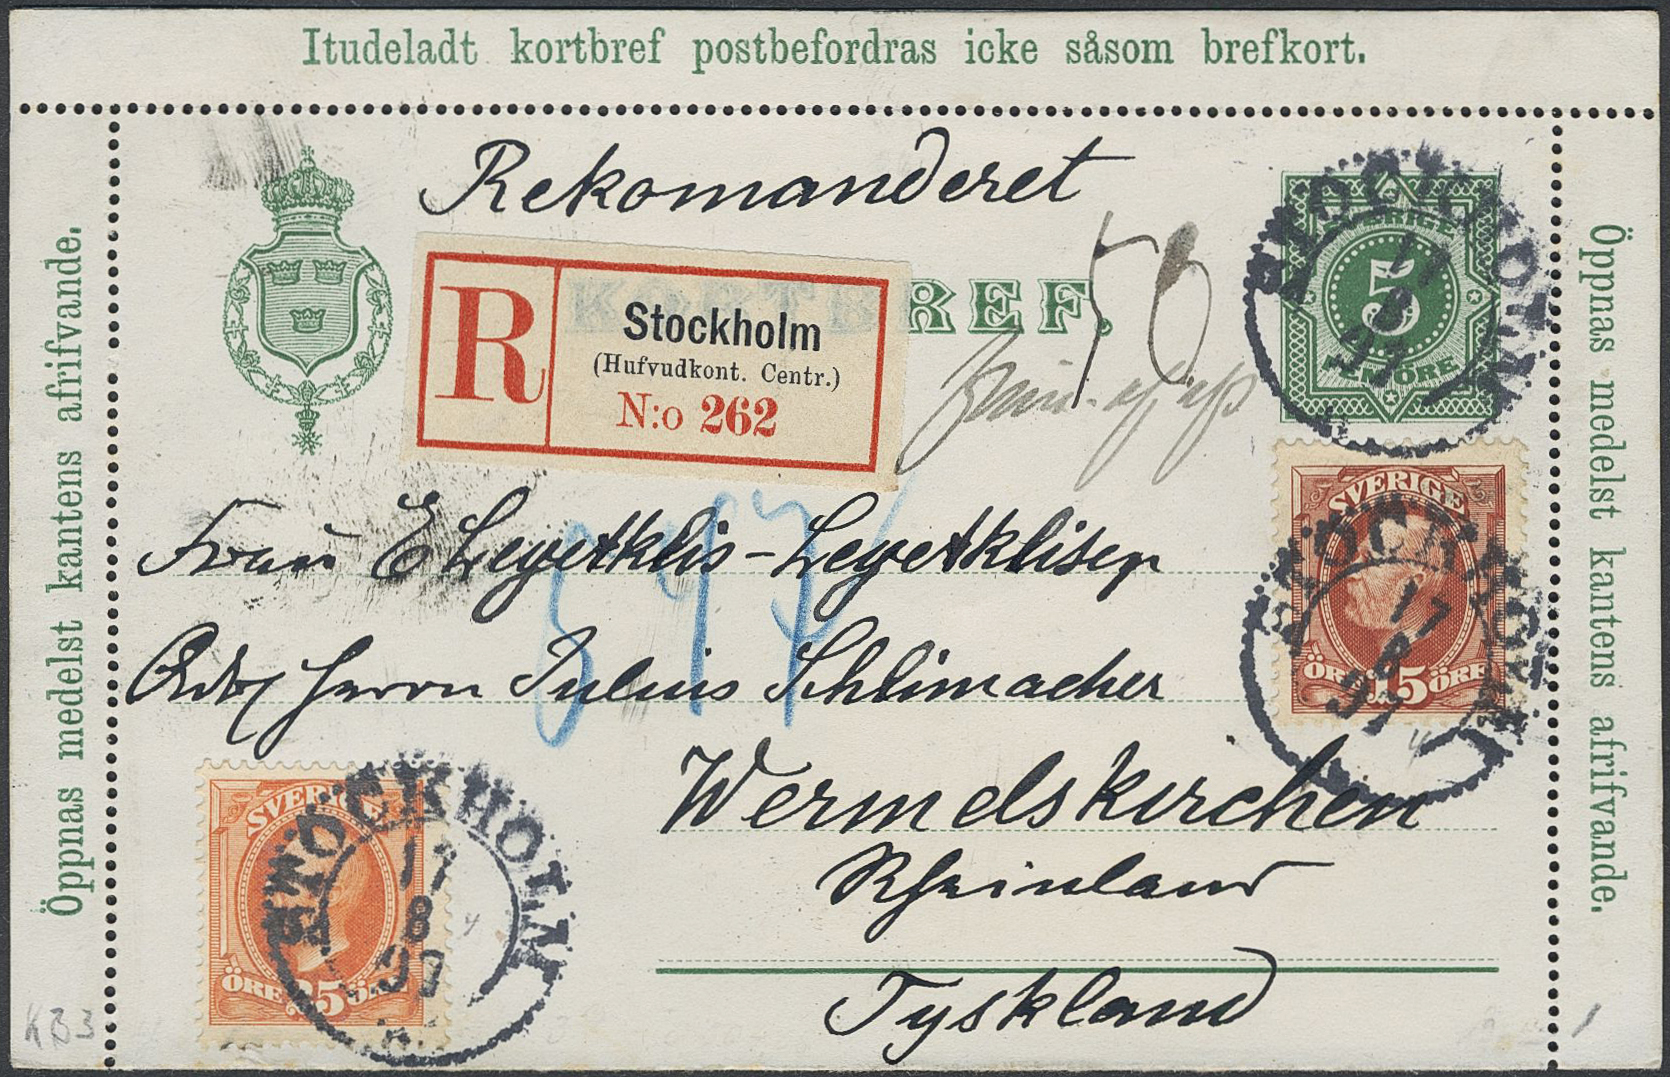 Itudeladt kortbref postbefordras icke såsom brefkort.
Öppnas medelst kantens afrifvande.
Rekomanderet
KORTBREF.
50
R
Stockholm
(Hufvudkont. Centr.)
N:o 262
SVERIGE
5
FEM ÖRE
STOCKHOLM
17
8
97
Frau E Legetklis-Legetklisen
Herrn Julius Schlimacher
Wermelskirchen
Rheinland
Tyskland
SVERIGE
ÖRE 15 ÖRE
STOCKHOLM
17
8
97
SVERIGE
ÖRE 25 ÖRE
STOCKHOLM
17
8
97
Öppnas medelst kantens afrifvande.
KB3
1